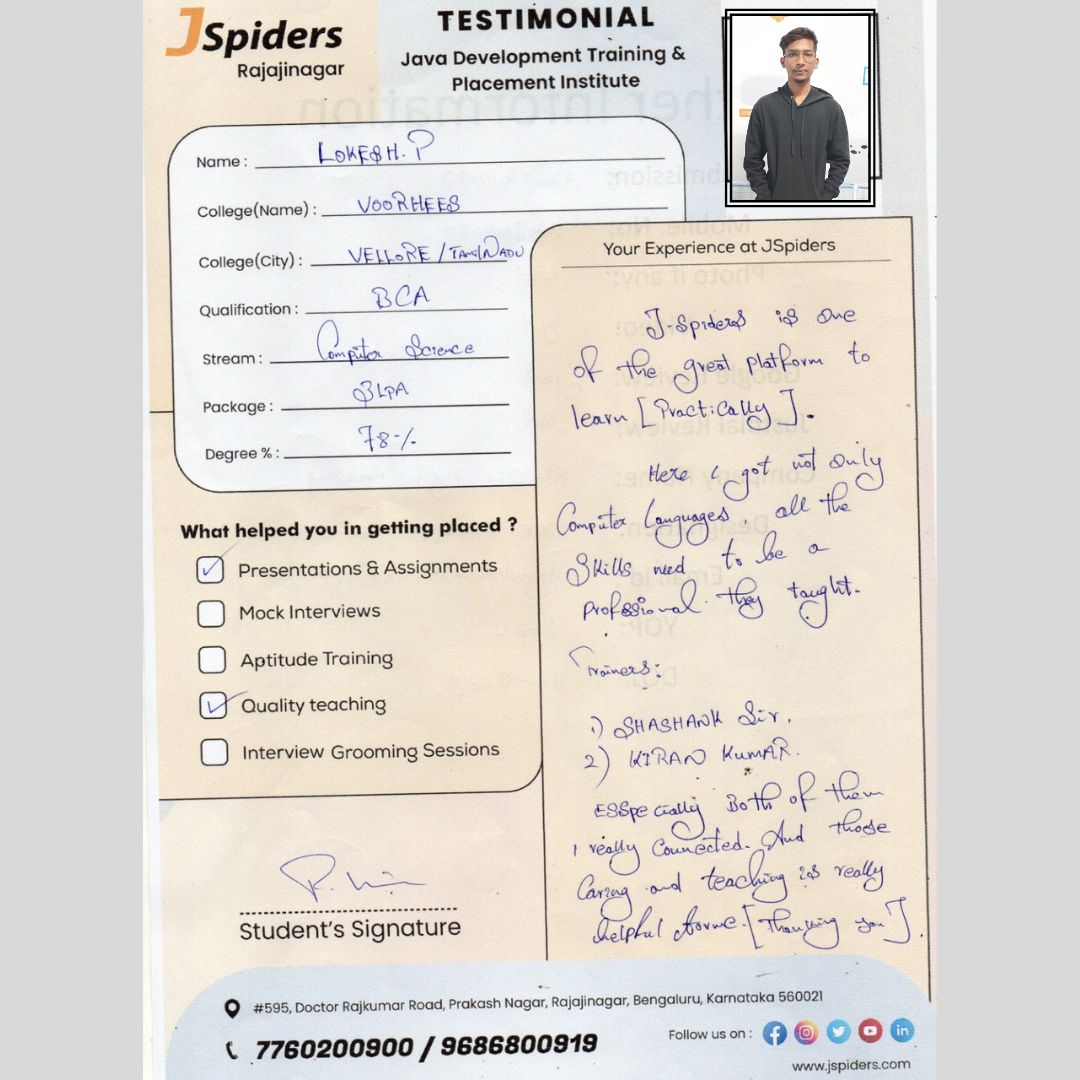 JSpiders
Rajajinagar
TESTIMONIAL
Java Development Training &
Placement Institute
Name : LOKESH. P
College(Name) : VOORHEES
College(City) : VELLORE / TamilNADU
Qualification : BCA
Stream : Computer Science
Package : 3LPA
Degree % : 78%
What helped you in getting placed ?
Presentations & Assignments
Mock Interviews
Aptitude Training
Quality teaching
Interview Grooming Sessions
Student's Signature
Your Experience at JSpiders
J-Spiders is one
of the great platform to
learn [Practically].
Here i got not only
Computer Languages, all the
Skills need to be a
professional they taught.
Trainers:
1) SHASHANK Sir.
2) KIRAN KUMAR.
ESSpecially Both of them
i really Connected. And those
Caring and teaching is really
helpful forme. [Thanking you].
#595, Doctor Rajkumar Road, Prakash Nagar, Rajajinagar, Bengaluru, Karnataka 560021
7760200900 / 9686800919
Follow us on :
www.jspiders.com